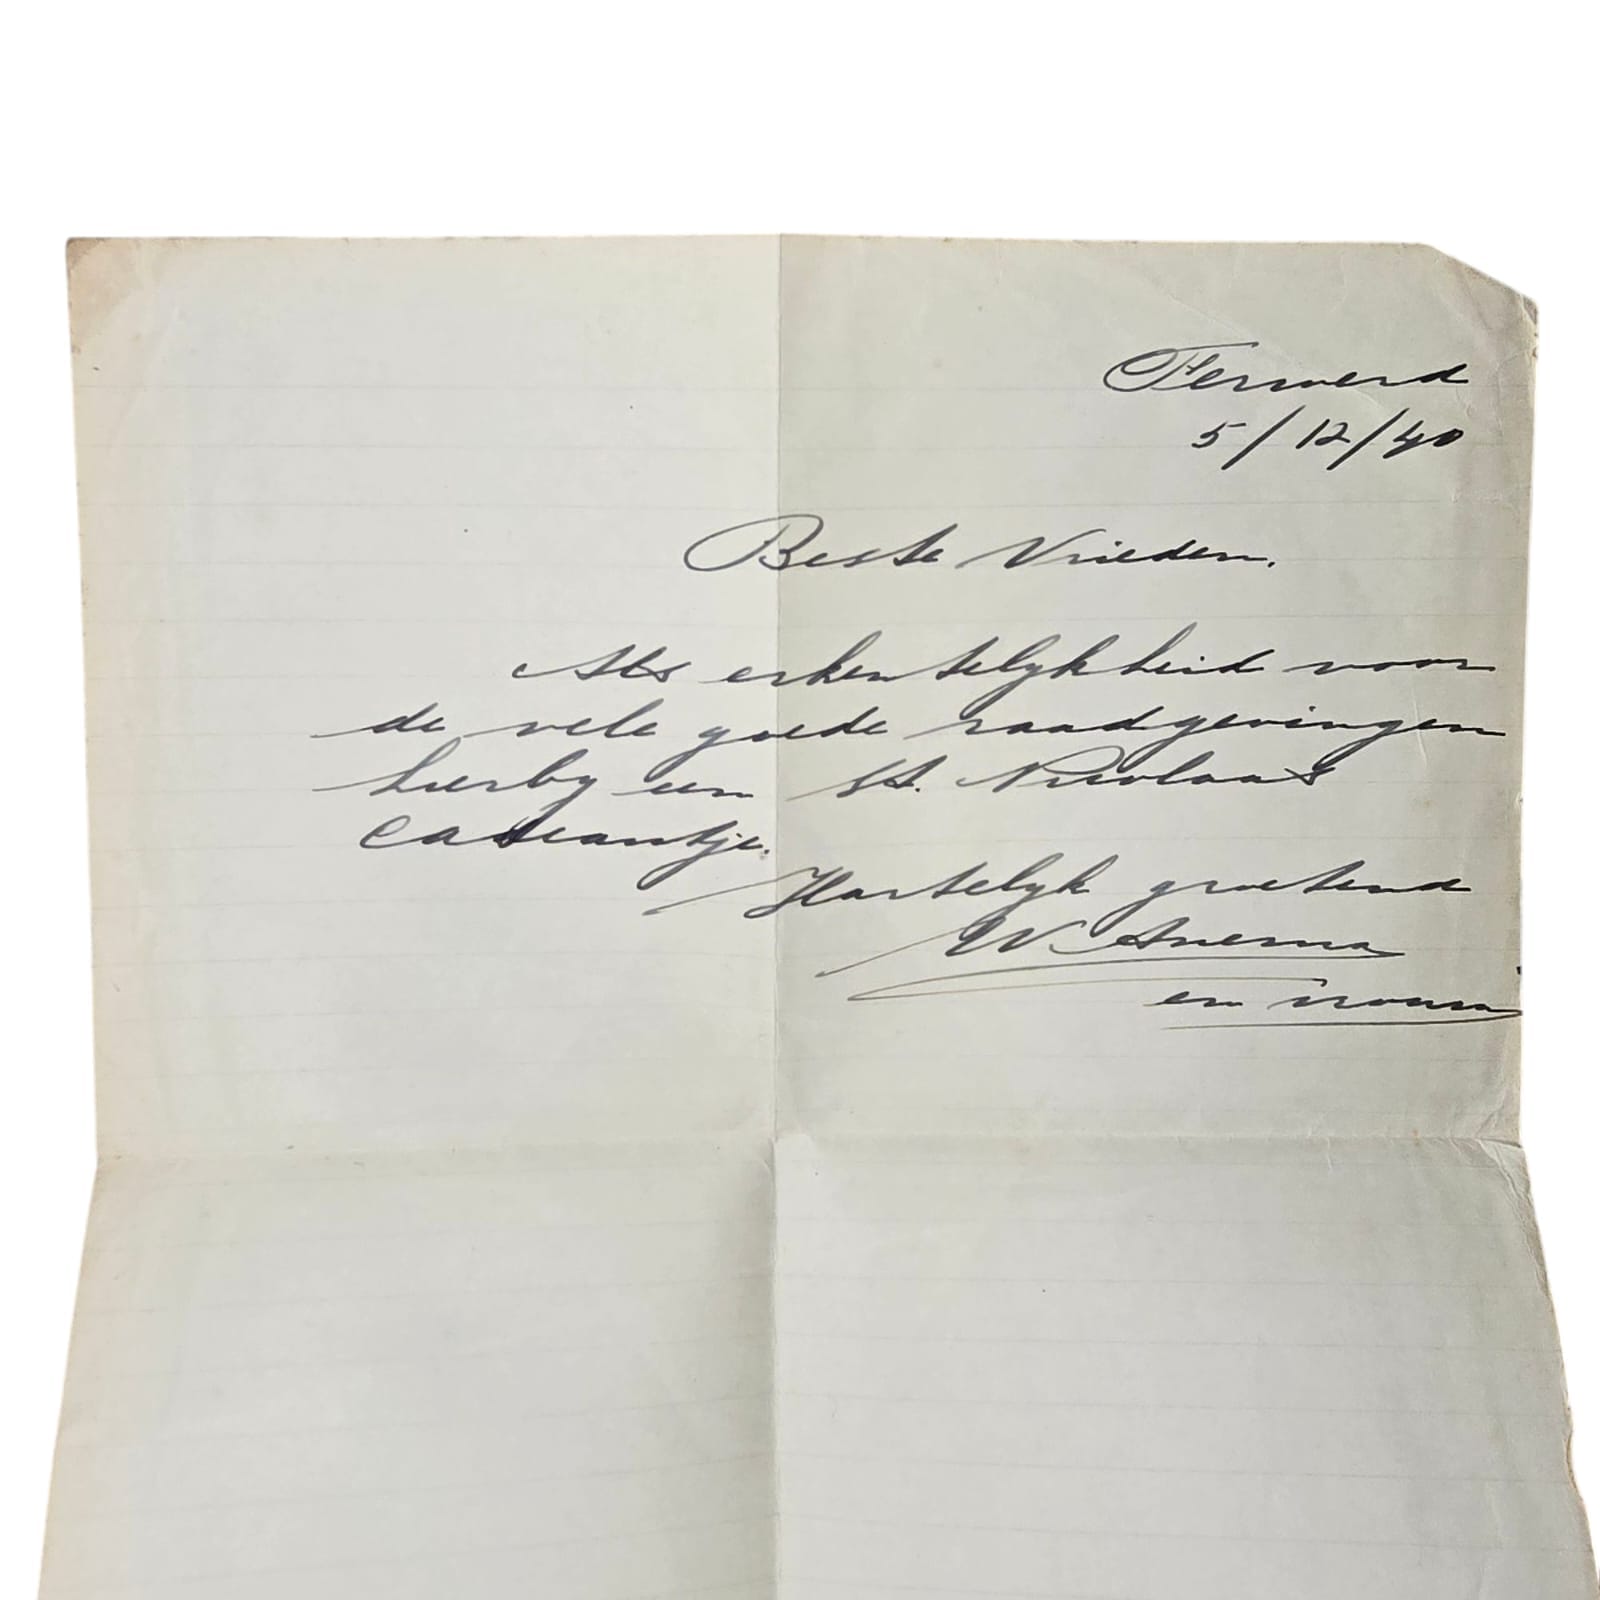 Ferwerd
5/12/40
Beste Vrieden.
Als erkentelijkheid voor
de vele goede raadgevingen
hierby een St. Nicolaas
cadeautje.
Hartelijk groetend
W. Anema
en vrouw